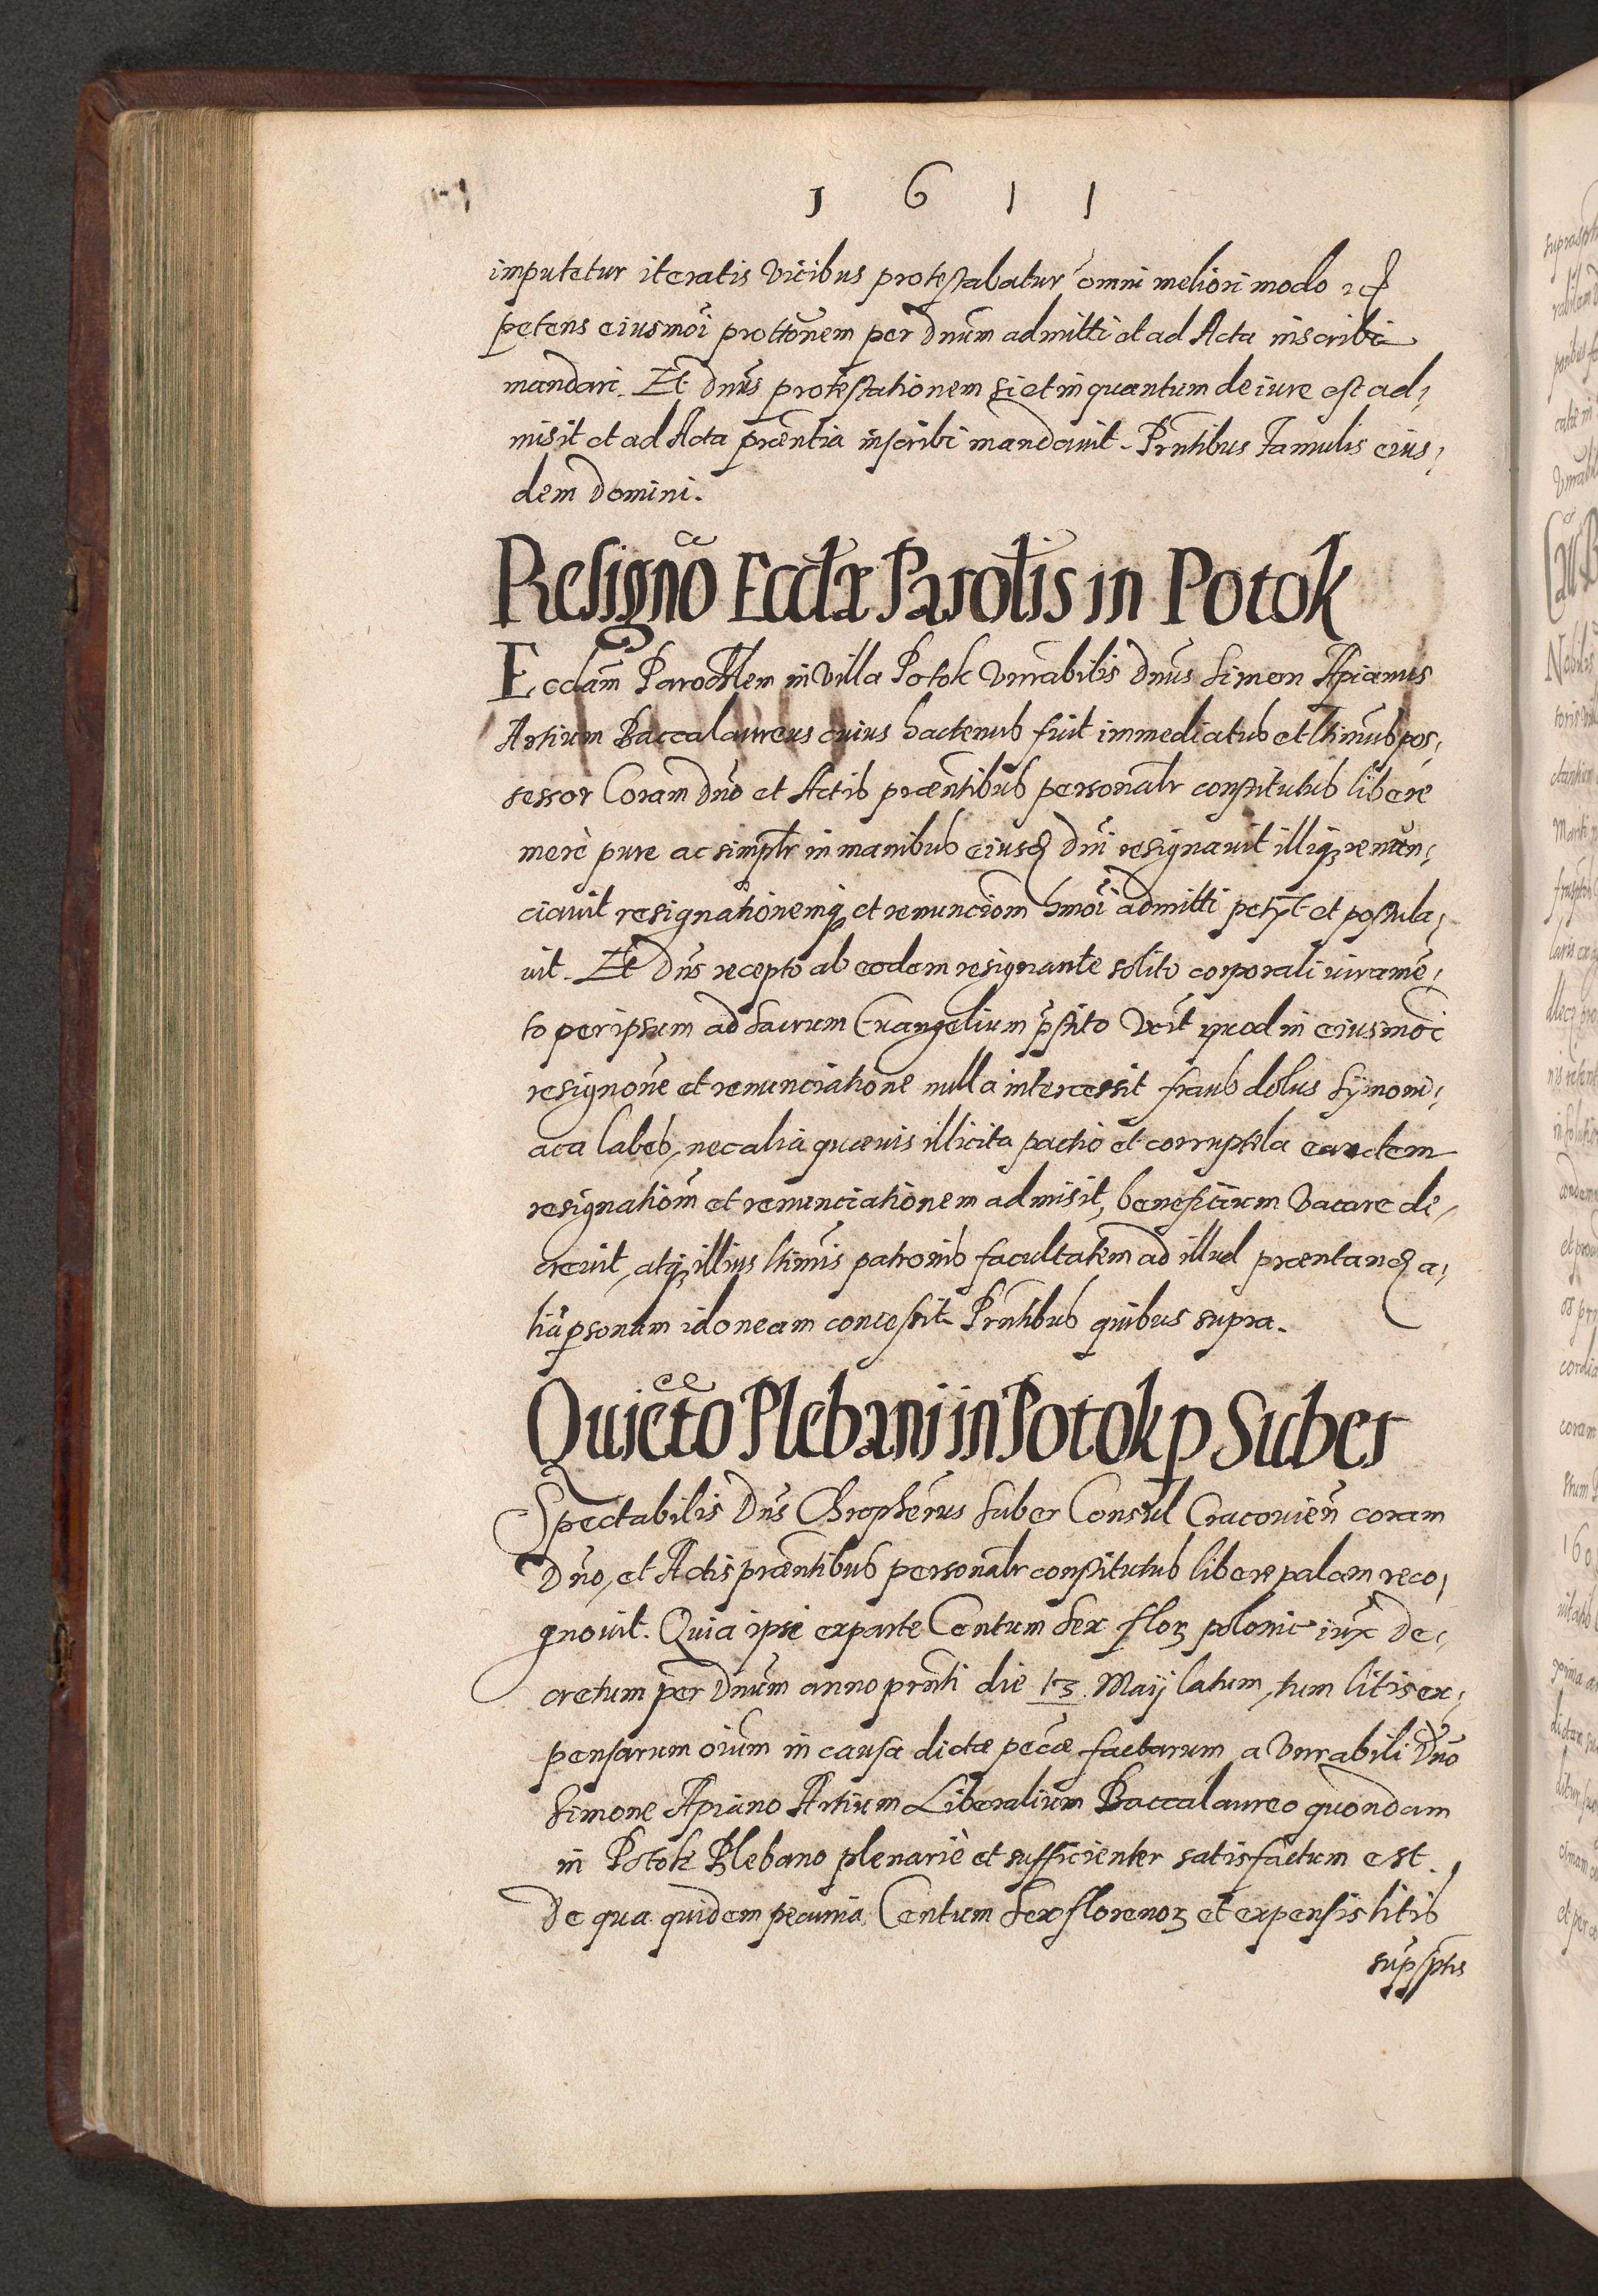 1 6 1 1
imputetur iteratis vicibus protestabatur omni meliori modo
petens eiusmoi prottonem per Dnum admitti et ad Acta inscribi
mandari. Et Dnus protestationem si et in quantum de iure est ad,
misit et ad Acta præntia inscribi mandavit. Prntibus Famulis eius,
dem Domini.
Resigno Ecclæ Parolis in Potok
Ecclam Parochlem in villa Potok Vnrabilis Dnus Simon Apianus
Artium Baccalaureus cuius hactenus fuit immediatus et lttimus pos,
sessor Coram Dno et Actis præntibus personalr constitutus libere
merè pure ac simplr in manibus eiusd Dni resignavit illiq renun,
ciavit resignationemq et renunciom hmoi admitti petyt et postula,
vit. Et Dns recepto ab eodem resignante solito corporali iurame,
to per ipsum ad Sacrum Euangelium pstito Vt quod in eiusmoi
resignone et renunciatione nulla intercessit fraus dolus Symoni,
aca labes, nec alia quævis illicita pactio et corruptela eandem
resignationm et renunciationem admisit, beneficium vacare de,
crevit, atq illius lttimis patronis facultatem ad illud præntand a,
lia psonam idoneam concessit. Prntibus quibus supra.
Quietto Plebani in Potok p Suber
Spectabilis Dns Chrophorus Suber Consul Cracovien coram
Dno, et Actis præntibus personalr constitutus libere palam reco,
gnovit. Quia ipsi ex parte Centum Sex flor polonic iux De,
cretum per Dnum anno prnti die 13 Maij latum, tum litis ex,
pensarum oium in causa dictæ pecæ factarum a Vnrabili Dno
Simone Apiano Artium Liberalium Baccalaureo quondam
in Potok Plebano plenariè et sufficienter satisfactum est.
De qua quidem pecunia Centum Sex florenor et expensis litis
supsptis